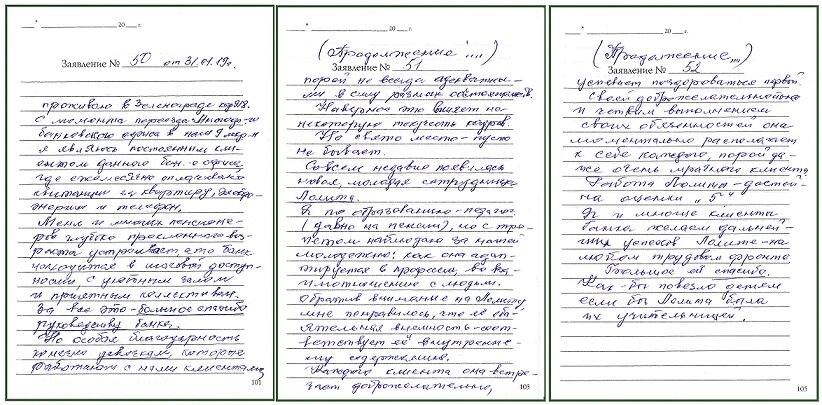 20 г.
Заявление № 50 от 31.01.19г.
проживаю в Зеленограде кор.918.
С момента переезда
банковского офиса в наш 9 мкр-н
я являюсь постоянным кли-
ентом данного бан-о офиса,
где ежемесячно оплачиваю
квитанции за квартиру, электро-
энергию и телефон.
Меня и многих пенсионе-
ров глубоко преклонного воз-
раста устраивает, что банк
находится в шаговой доступ-
ности, с уютным залом
и приятным коллективом.
За все это – большое спасибо
руководству банка.
Но особая благодарность
конечно девочкам, которые
работают с нами клиентами,
101
20 г.
(Продолжение ....)
Заявление № 51
порой не всегда адекватны-
ми в силу разных обстоятельств.
Наверное это влияет на
некоторую текучесть кадров.
Но свято место – пусто
не бывает.
Совсем недавно появилась
новая, молодая сотрудница
Лолита.
Я по образованию – педагог
(давно на пенсии), но с тре-
петом наблюдаю за нашей
молодежью: как она адап-
тируется в профессии, во вза-
имоотношение с людьми.
Обратив внимание на Лолиту
мне понравилось, что её оба-
ятельная внешность – соот-
ветствует её внутренне-
му содержанию.
Каждого клиента она встре-
чает доброжелательно,
103
20 г.
(Продолжение...)
Заявление № 52
успевает поздороваться первой.
Своей доброжелательностью
и четким выполнением
своих обязанностей она
моментально располагает
к себе каждого, порой да-
же очень мрачного клиента
Работа Лолиты – достой-
на оценки "5"
Я и многие клиенты
банка желаем дальней-
ших успехов Лолите – на
любом трудовом фронте
Большое ей спасибо.
Как-бы повезло детям
если бы Лолита была
их учительницей.
105